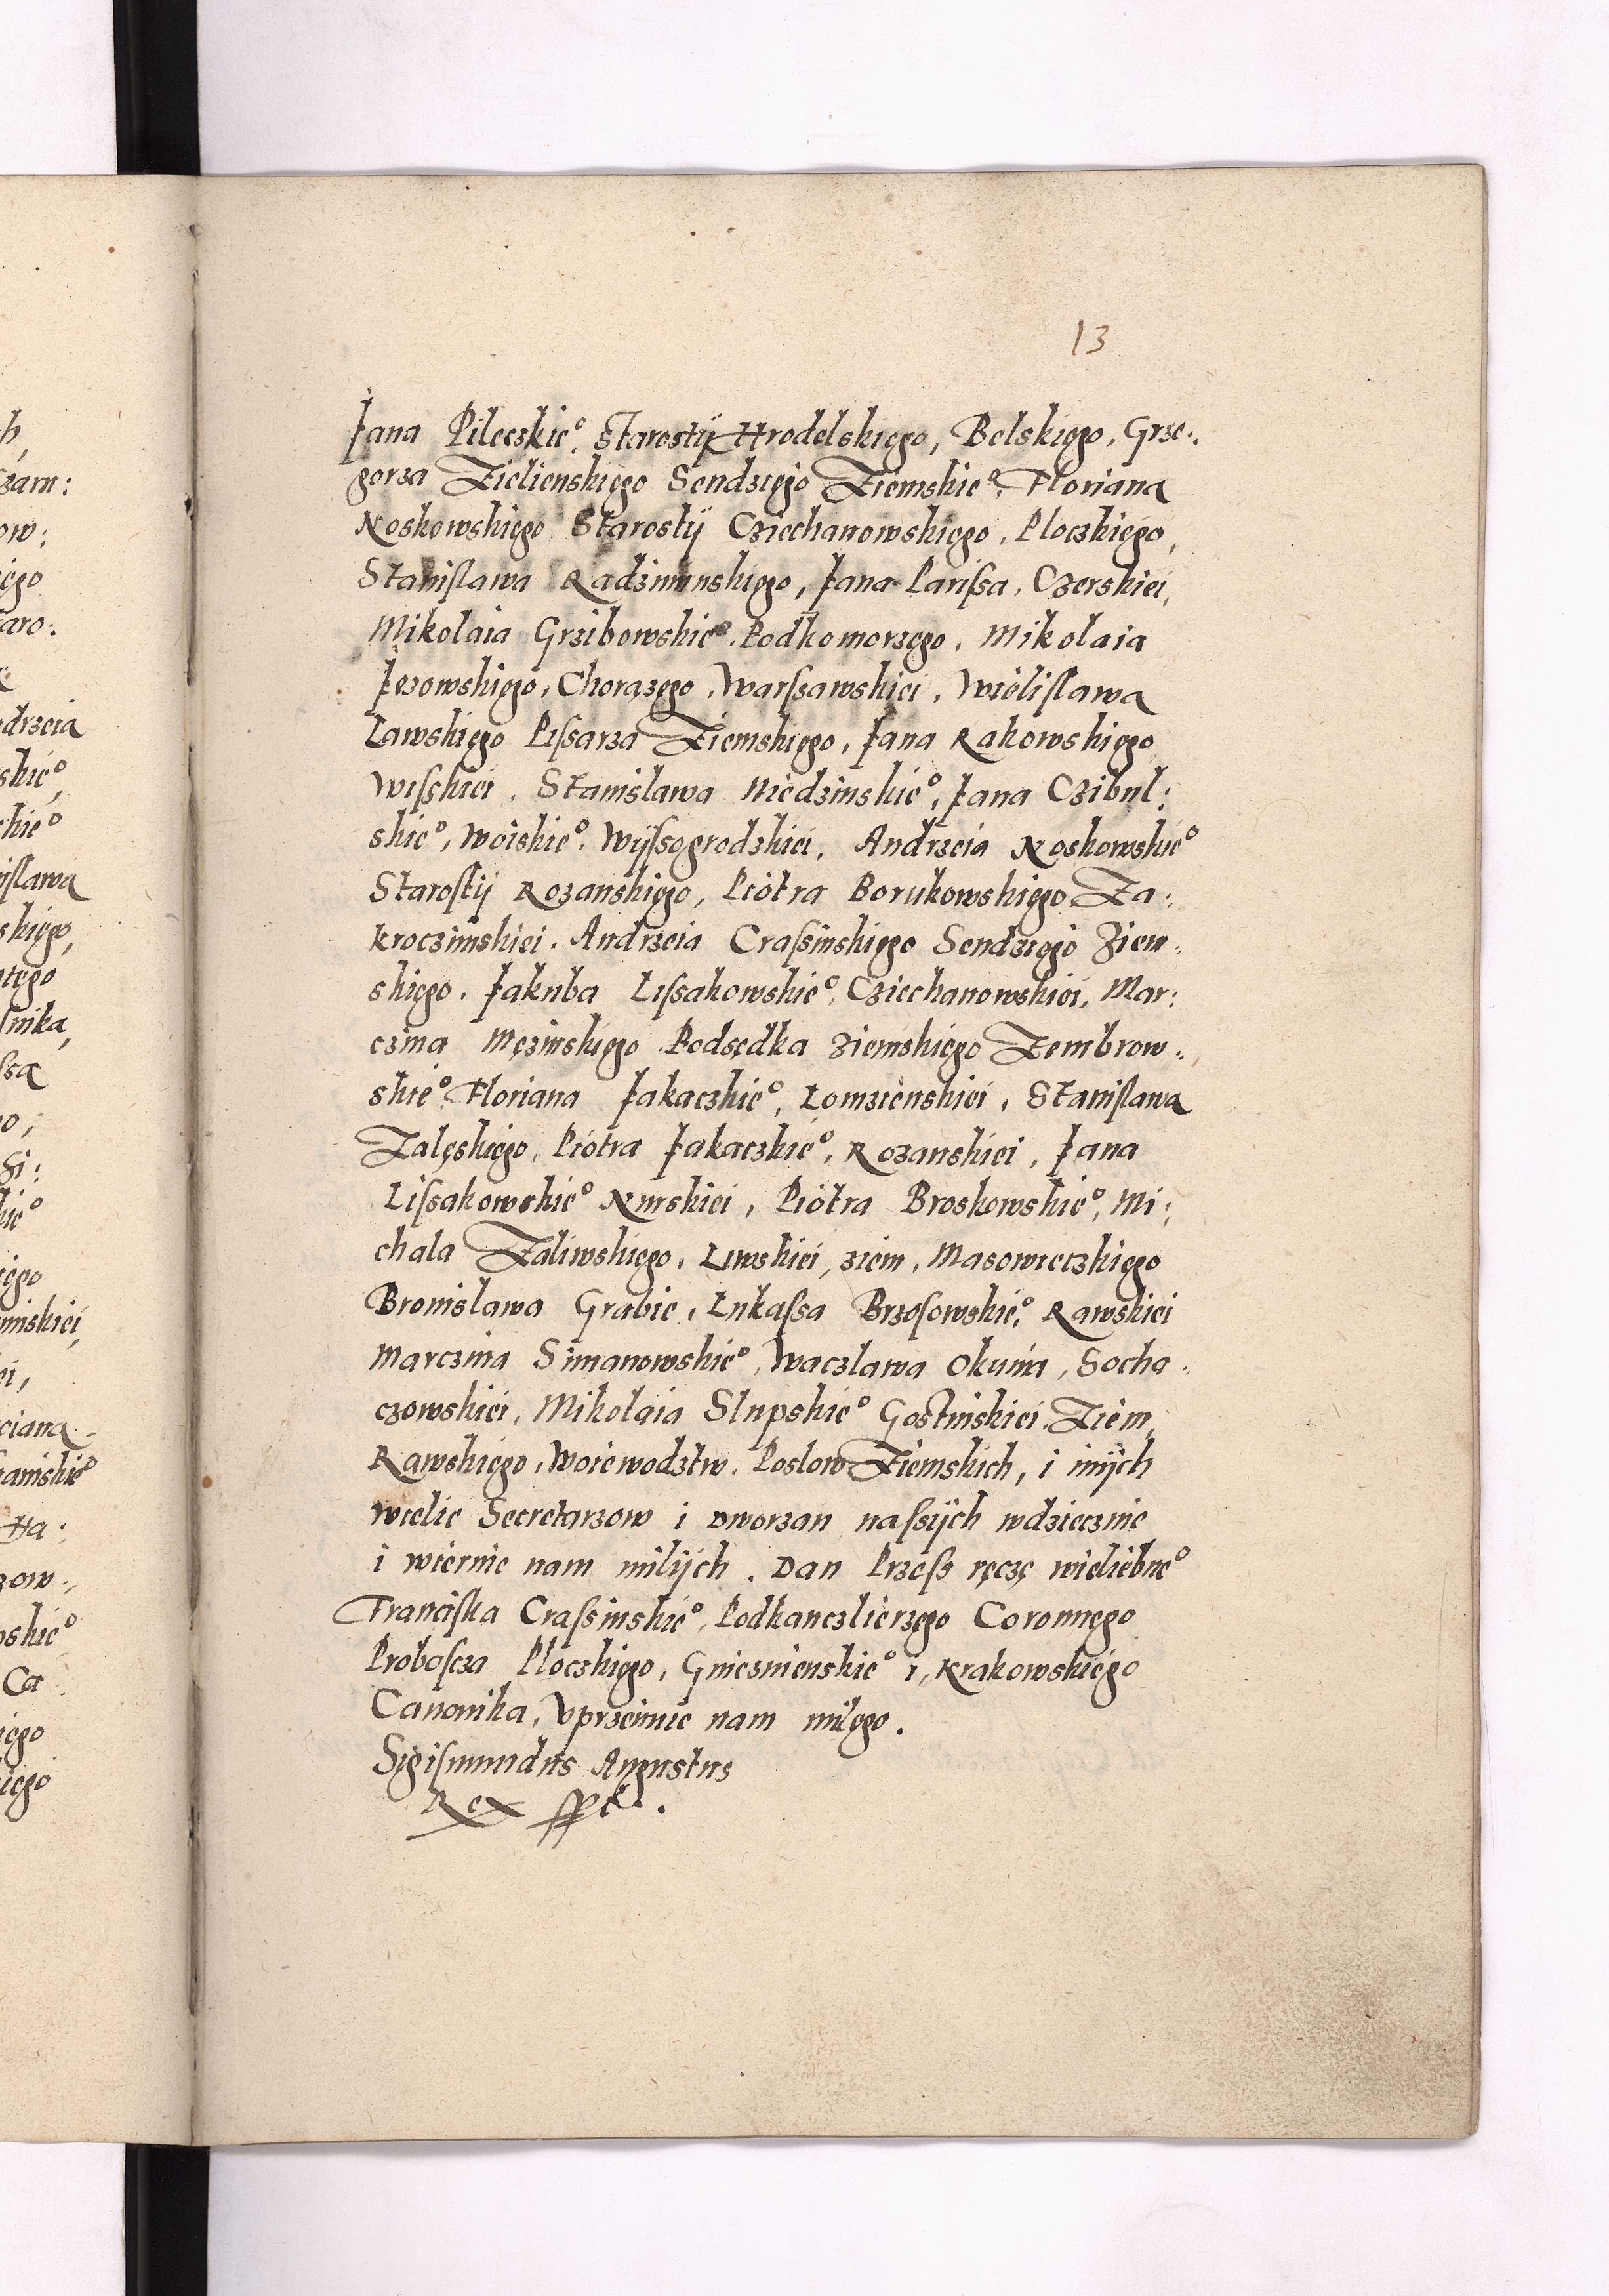 13
Jana Pileczkie°, Starostÿ Hrodelskięgo, Belskięgo, Grze:
gorza Zielienskięgo Sendzięgo Ziemskie°, Floriana
Noskowskięgo Starostÿ Cziechanowskięgo, Ploczkięgo,
Staniſlawa Radziminskięgo, Jana Pariſsa, Czerskiei,
Mikolaia Grzibowskie°, Podkomorzęgo, Mikolaia
Jezowskięgo, Chorązęgo, Warſsawskiei, Wieliſlawa
Lawskięgo Piſsarza Ziemskięgo, Jana Rakowskięgo
Wiſskiei. Stanislawa Niedzinskie°, Jana Czibul:
skie°, Woiskie°. Wÿſsogrodzkiei. Andrzeia Noskowskie°
Staroſtÿ Rozanskięgo, Piotra Borukowskięgo Za:
kroczimskiei. Andrzeia Craſsinskięgo Sendzięgo Ziem:
skięgo. Jakuba Liſsakowskie°, Cziechanowskiei, Mar:
czina Męzinskięgo Podsędka Ziemskięgo Zembrow:
skie° Floriana Jakaczkie°, Lomzienskiei, Staniſlawa
Zalęskięgo, Piotra Jakaczkie°, Rozanskiei, Jana
Liſsakowskie° Nurskiei, Piotra Broskowskie°, Mi:
chala Zaliwskięgo, Liwskiei, ziem, Masowieczkięgo
Bronislawa Grabie, Lukaſsa Brzoſowskie°, Rawskiei
Marczina Simanowskie°, Waczlawa Okunia, Socha:
czowskiei, Mikolaia Slupskie° Gostinskiei Ziem,
Rawskięgo, Woiewodztw. Poslow Ziemskich, i inÿch
wielie Secretarzow i Dworzan naſsÿch wdziecznie
i wiernie nam milÿch. Dan Przeſs ręczę wieliebne°
Franciſka Craſsinskie°, Podkanczlierzęgo Coronnego
Proboſcza Ploczkięgo, Gnieznienskie° i, Krakowskięgo
Canonika, Vprzeimie nam milęgo.
Sigiſmundus Augustus
Rex sſpt.